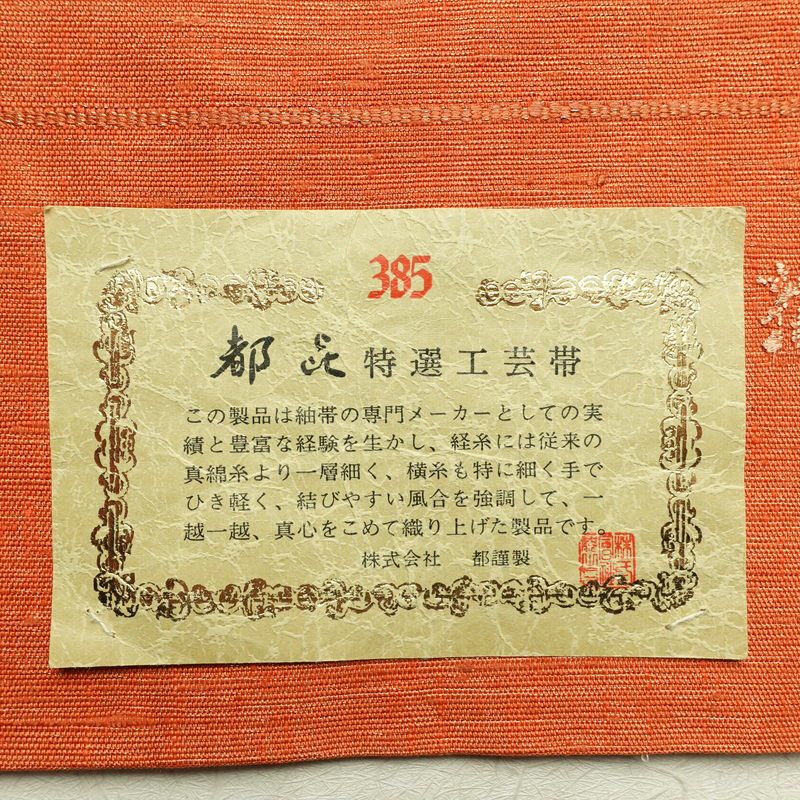 385
都 特選工芸帯
この製品は紬帯の専門メーカーとしての実
績と豊富な経験を生かし、経糸には従来の
真綿糸より一層細く、横糸も特に細く手で
ひき軽く、結びやすい風合を強調して、一
越一越、真心をこめて織り上げた製品です。
株式会社 都謹製